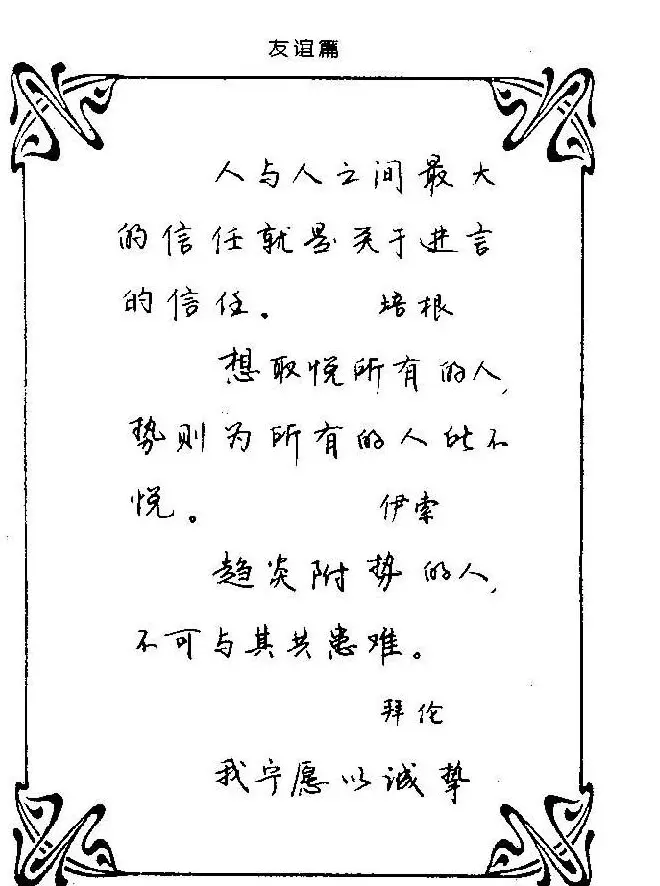 友谊篇
人与人之间最大
的信任就是关于进言
的信任。 培根
想取悦所有的人,
势则为所有的人所不
悦。 伊索
趋炎附势的人,
不可与其共患难。
拜伦
我宁愿以诚挚